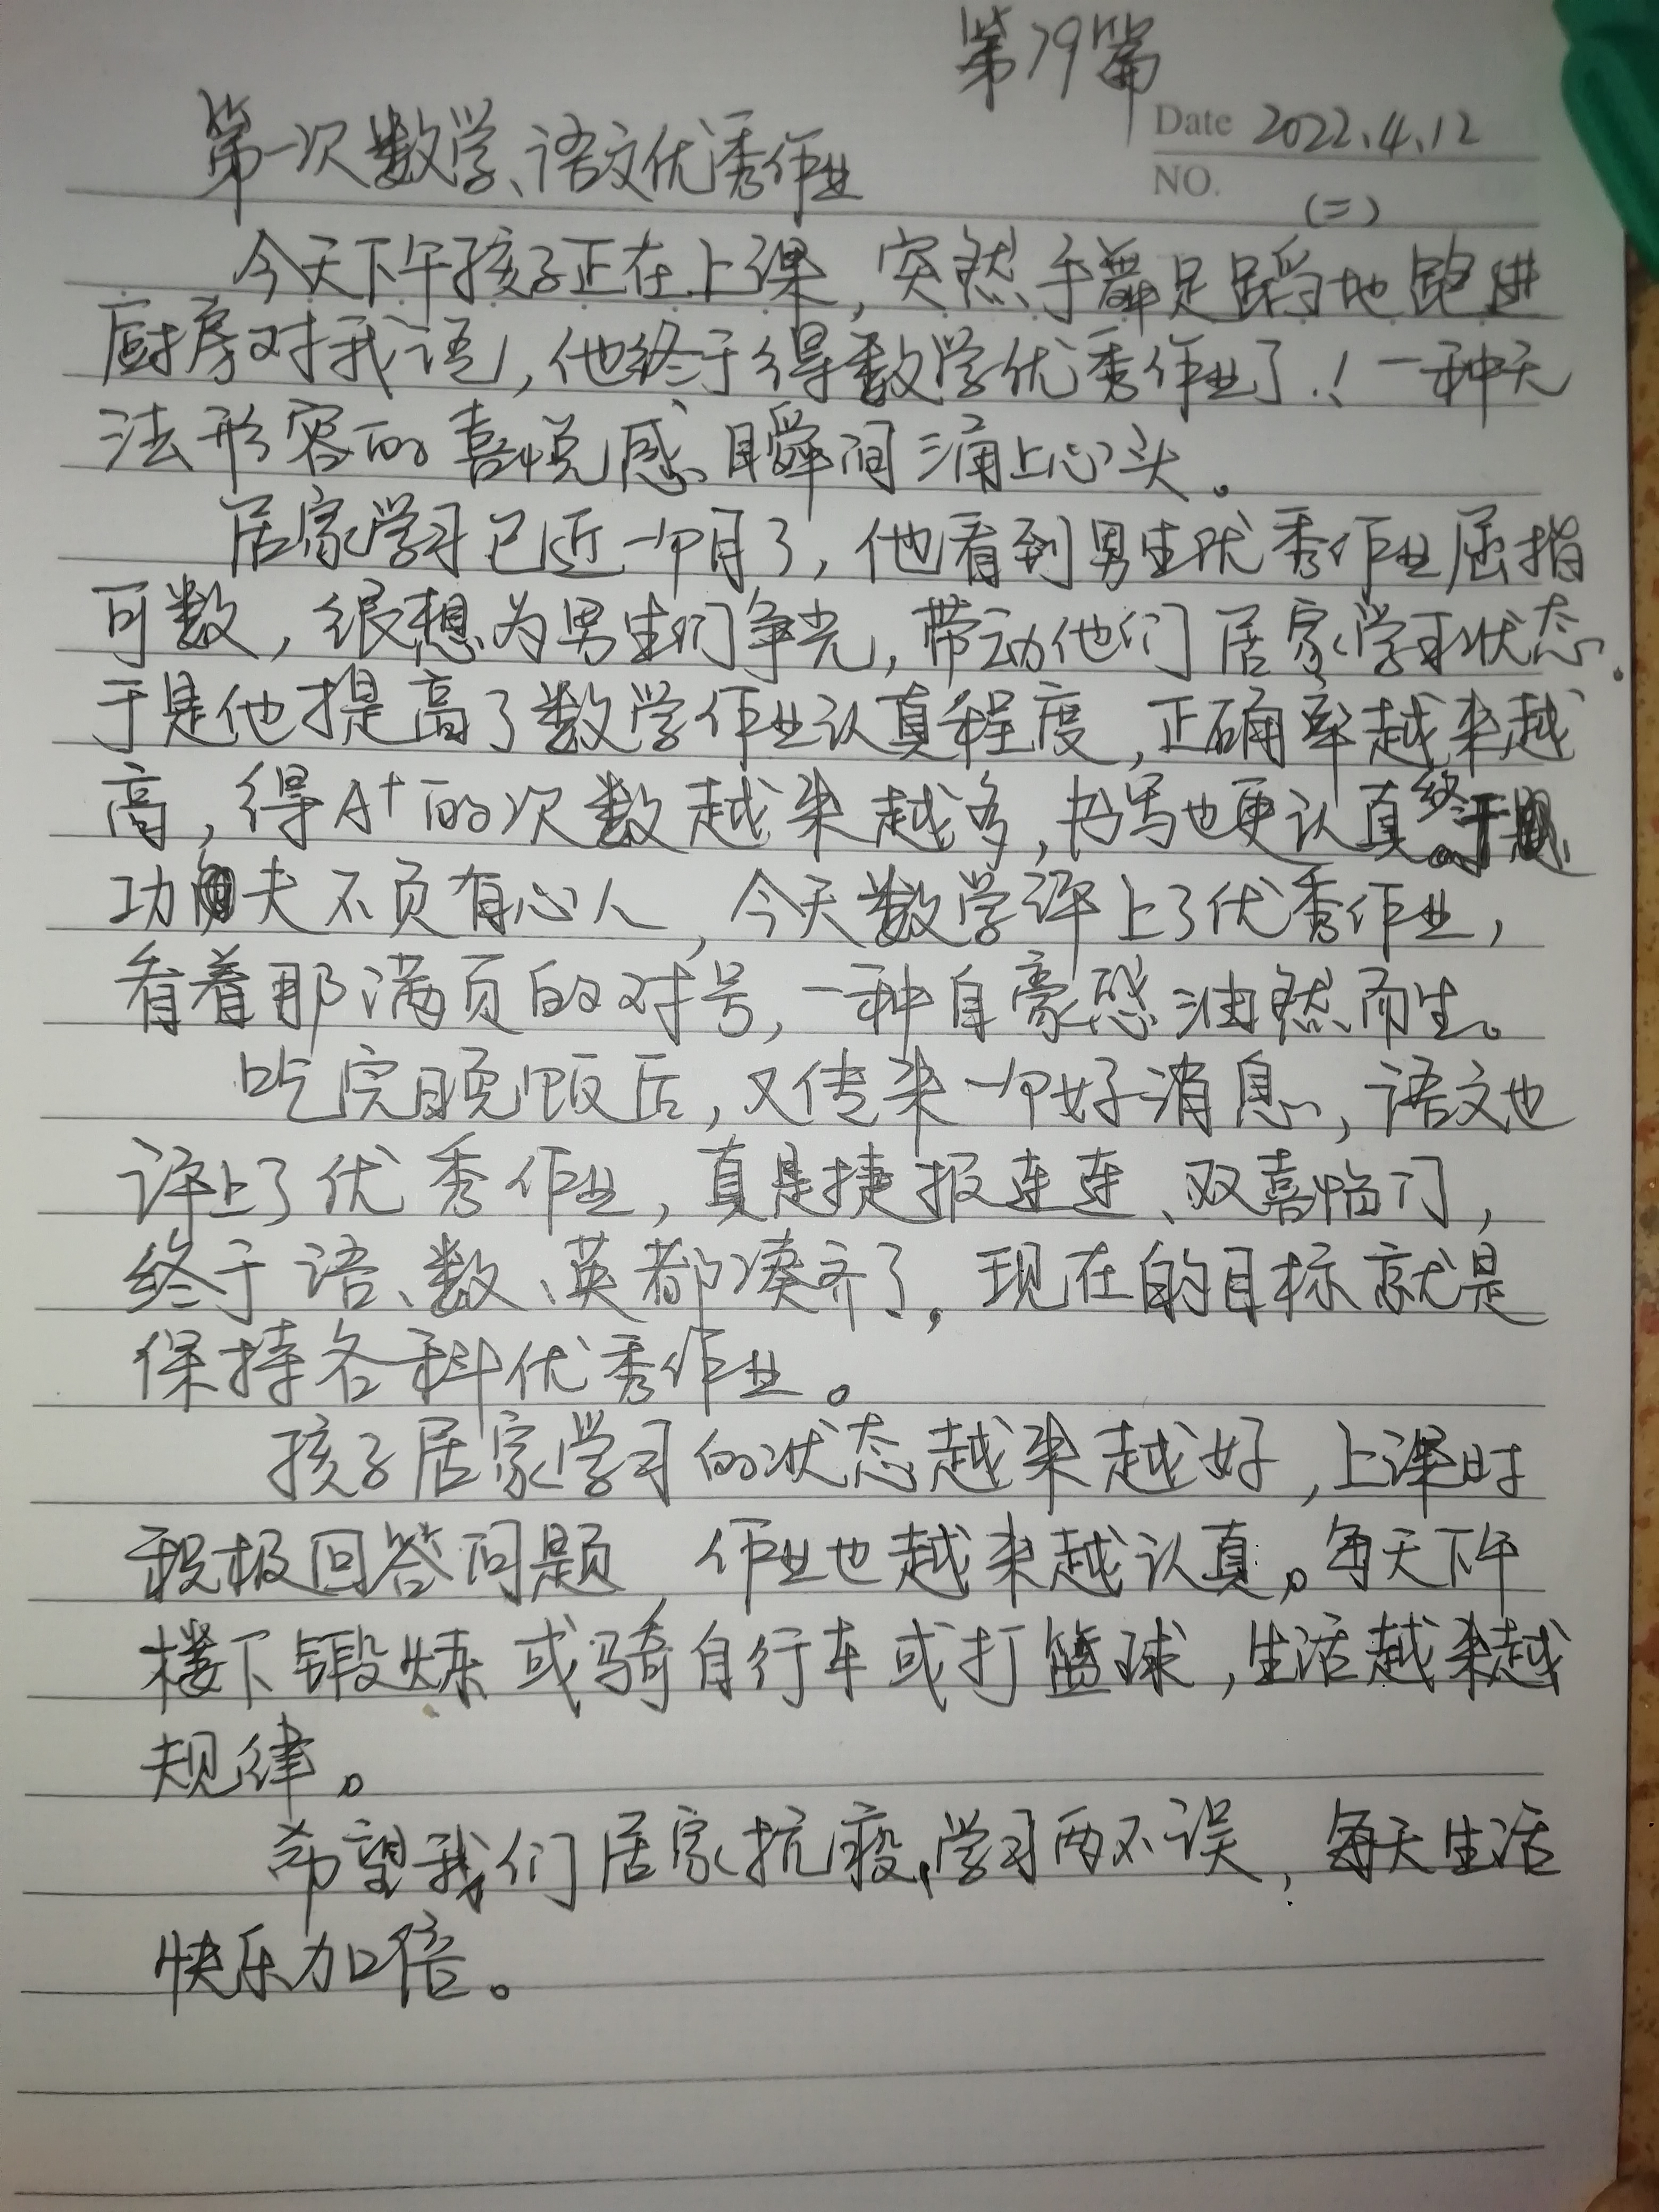 第79篇
Date 2022.4.12
第一次数学、语文优秀作业
NO.
(二)
今天下午孩子正在上课,突然手舞足蹈地跑进
厨房对我说,他终于得数学优秀作业了!一种无
法形容的喜悦感瞬间涌上心头。
居家学习已近一个月了,他看到男生优秀作业屈指
可数,很想为男生们争光,带动他们居家学习状态.
于是他提高了数学作业认真程度,正确率越来越
高,得A+的次数越来越多,书写也更认真。终于
功夫不负有心人,今天数学评上了优秀作业,
看着那满页的对号,一种自豪感油然而生。
吃完晚饭后,又传来一个好消息,语文也
评上了优秀作业,真是捷报连连、双喜临门,
终于语、数、英都凑齐了,现在的目标就是
保持各科优秀作业。
孩子居家学习的状态越来越好,上课时
积极回答问题,作业也越来越认真。每天下午
楼下锻炼或骑自行车或打篮球,生活越来越
规律。
希望我们居家抗疫、学习两不误,每天生活
快乐加倍。